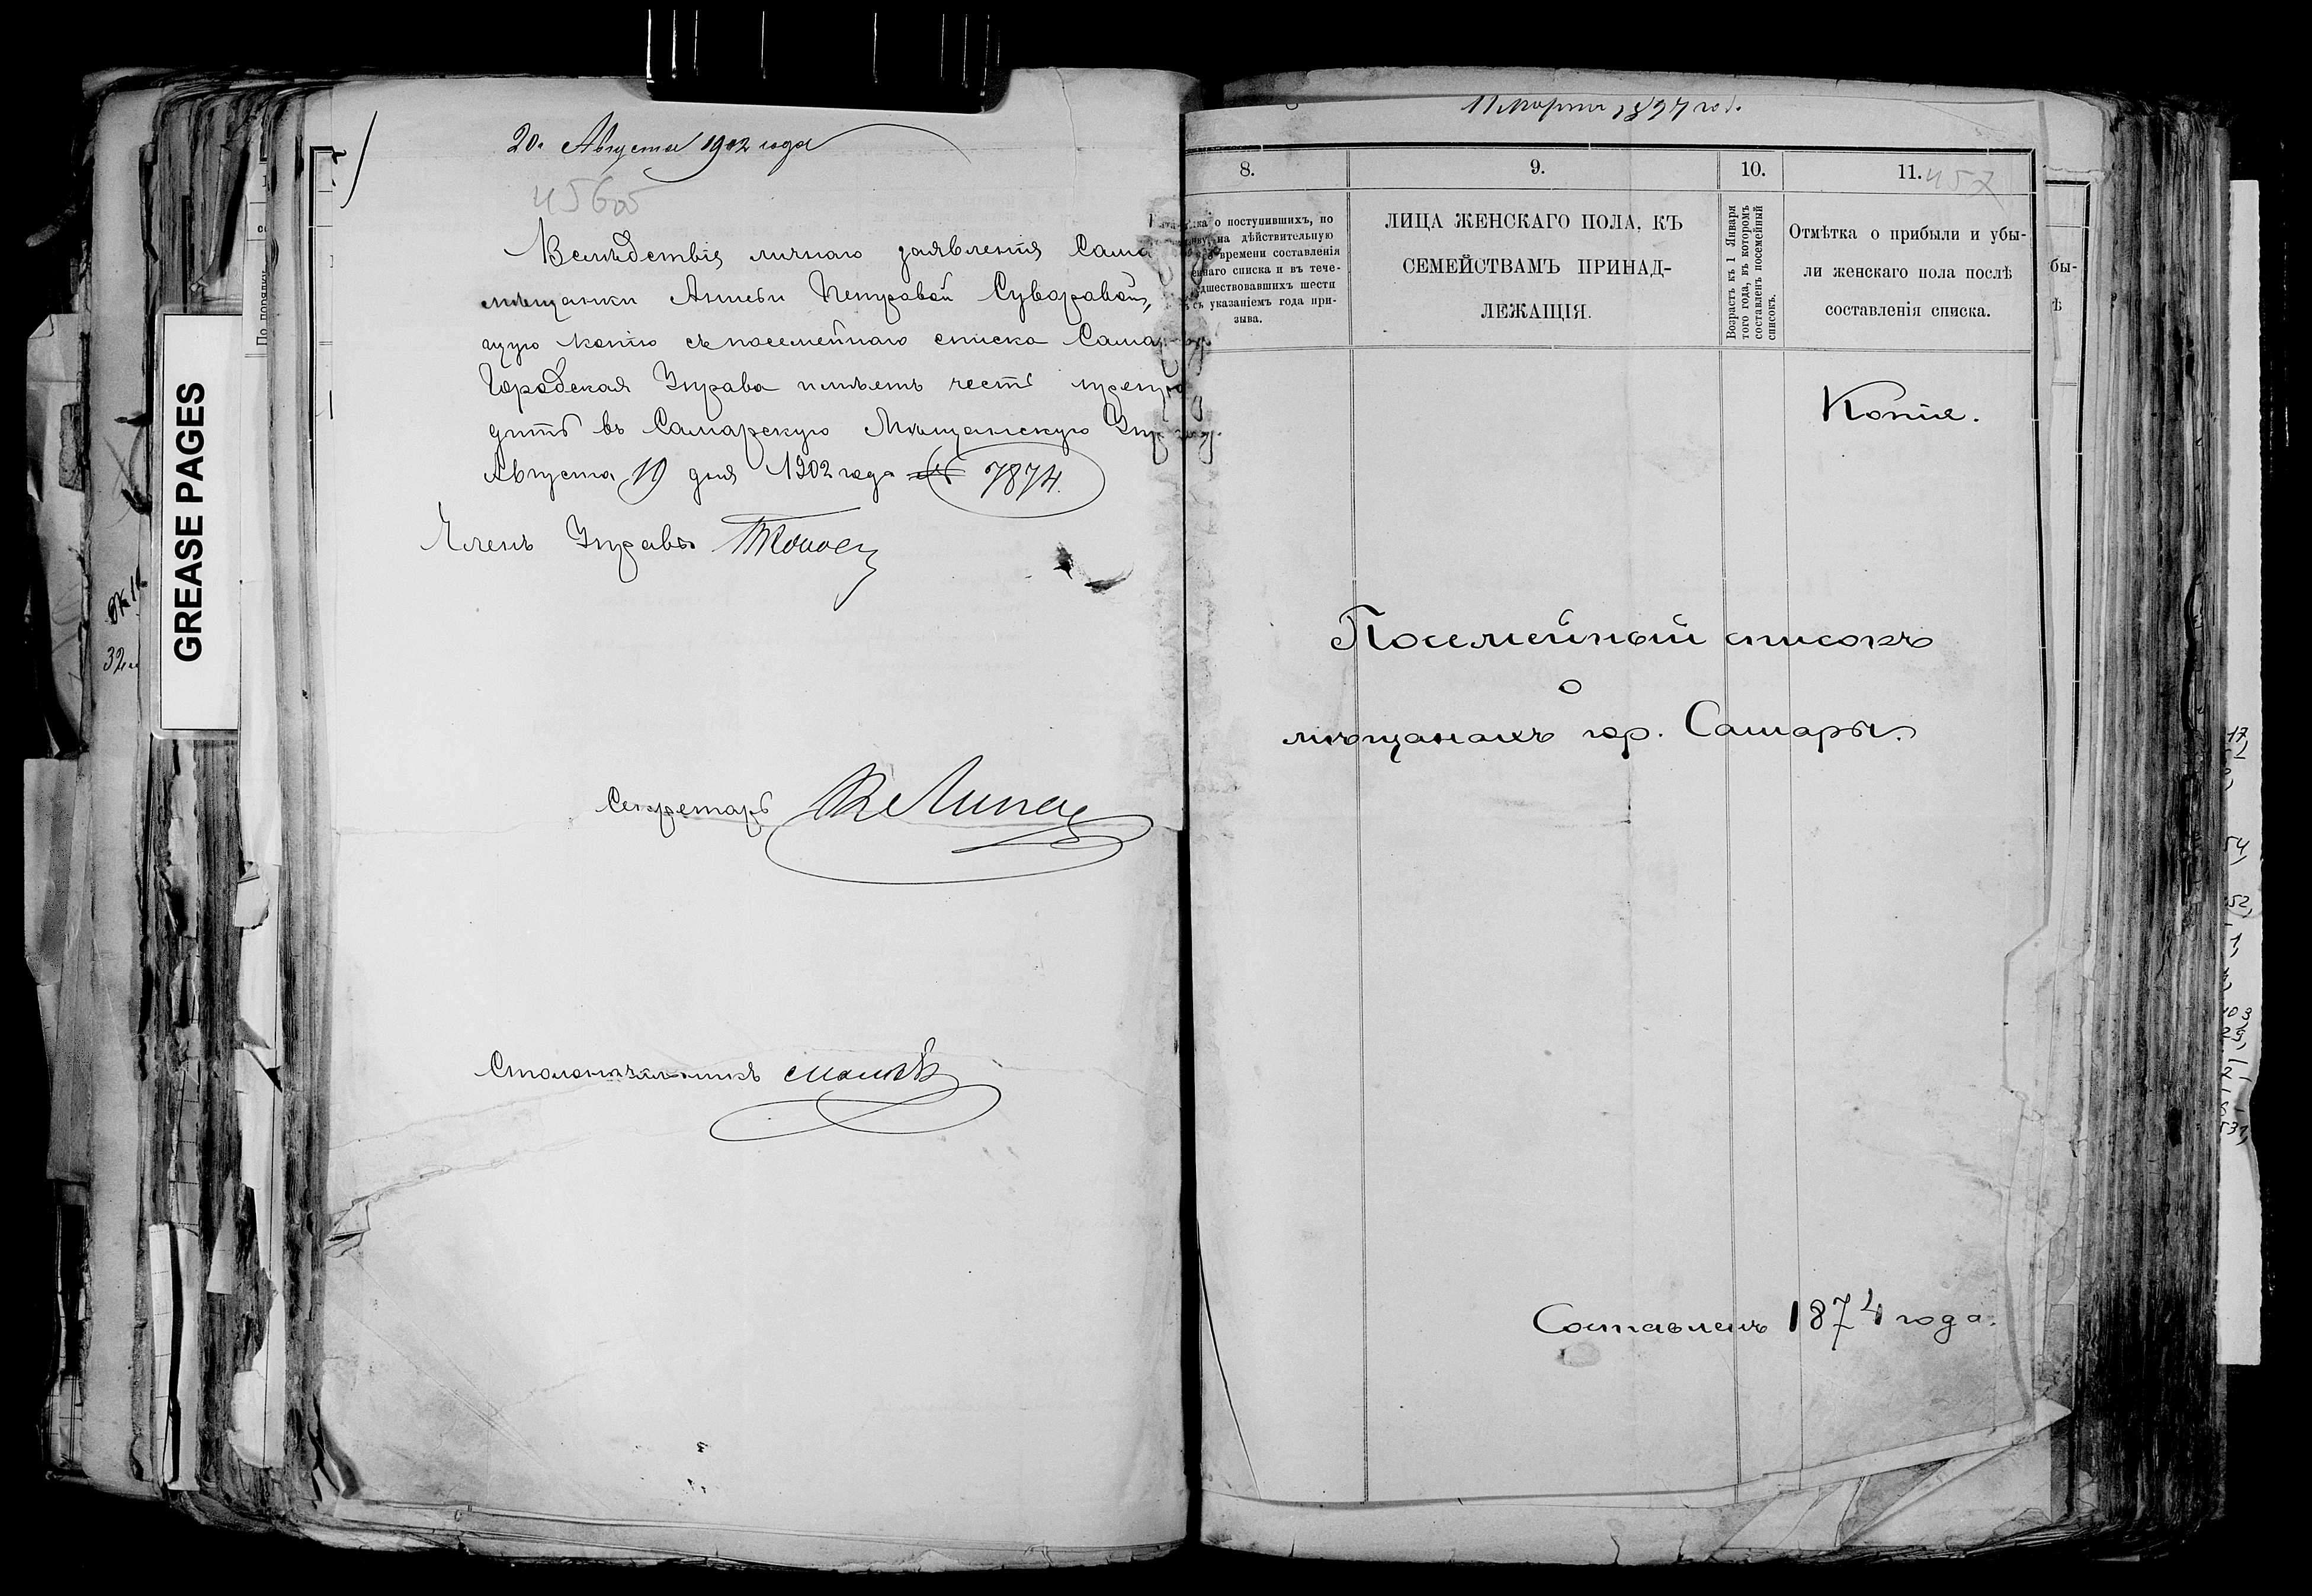 20. Августа 1902 года
456об
Вслѣдствіе личнаго заявленія Сама
мѣщанки Анисьи Петровой Суворовой,
щую копію съ посемейнаго списка Сама
Городская Управа имѣетъ честь препро
дить въ Самарскую Мѣщанскую Упр
Августа 19 дня 1902 года № 7874.
Членъ Управы
Секретарь
Столоначальникъ
GREASE PAGES
11 Марта 1897 год.
8.
9.
10.
11.
457
о поступившихъ, по
на дѣйствительную
времени составленія
списка и въ тече-
дшествовавшихъ шести
съ указаніемъ года при-
зыва.
ЛИЦА ЖЕНСКАГО ПОЛА, КЪ
СЕМЕЙСТВАМЪ ПРИНАД-
ЛЕЖАЩІЯ.
Возрастъ къ 1 Января
того года, въ которомъ
составленъ посемейный
списокъ.
Отмѣтка о прибыли и убы-
ли женскаго пола послѣ
составленія списка.
бы-
ѣ
Копія.
Посемейный списокъ
о
мѣщанахъ гор. Самары.
Составленъ 1874 года.